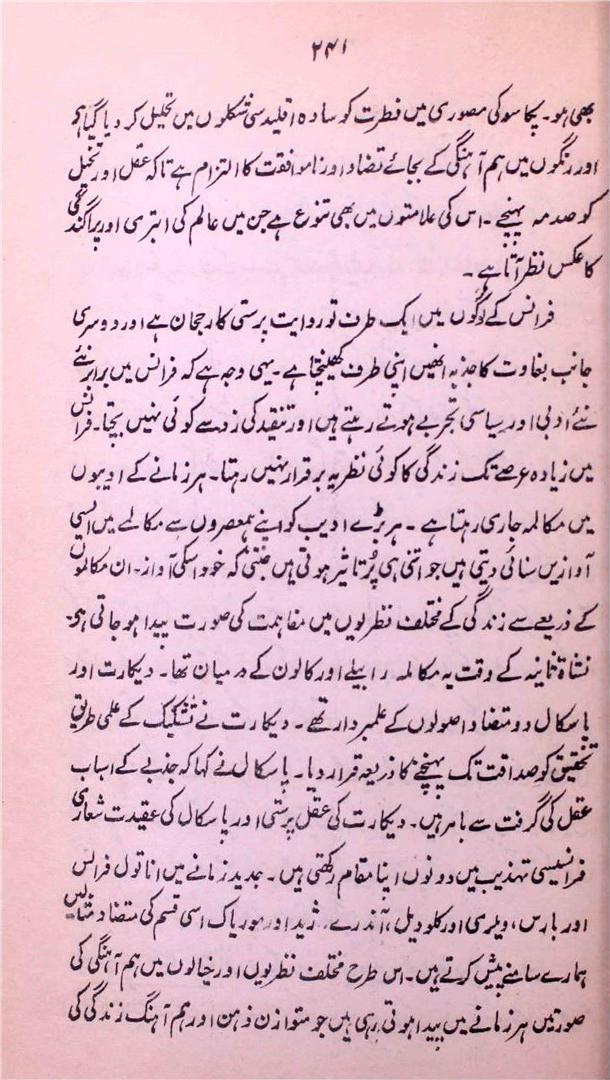 ۲۴۱
بھی ہو۔ پکاسو کی مصوری میں فطرت کو سادہ اقلیدسی شکلوں میں تحلیل کر دیا گیا ہے
اور رنگوں میں ہم آہنگی کے بجائے تضاد اور ناموافقت کا التزام ہے تاکہ عقل اور تخیل
کو صدمہ پہنچے۔ اس کی علامتوں میں بھی تنوع ہے جن میں عالم کی ابتری اور پراگندگی
کا عکس نظر آتا ہے۔
فرانس کے لوگوں میں ایک طرف تو روایت پرستی کا رجحان ہے اور دوسری
جانب بغاوت کا جذبہ انھیں اپنی طرف کھینچتا ہے۔ یہی وجہ ہے کہ فرانس میں برابر نئے
نئے ادبی اور سیاسی تجربے ہوتے رہتے ہیں اور تنقید کی زد سے کوئی نہیں بچتا۔ فرانس
میں زیادہ عرصے تک زندگی کا کوئی نظریہ برقرار نہیں رہتا۔ ہر زمانے کے ادیبوں
میں مکالمہ جاری رہتا ہے۔ ہر بڑے ادیب کو اپنے ہمعصروں سے مکالمے میں ایسی
آوازیں سنائی دیتی ہیں جو اتنی ہی پُر تاثیر ہوتی ہیں جتنی کہ خود اسکی آواز۔ ان مکالموں
کے ذریعے سے زندگی کے مختلف نظریوں میں مفاہمت کی صورت پیدا ہو جاتی ہے۔
نشاۃ ثانیہ کے وقت یہ مکالمہ رابیلے اور کالون کے درمیان تھا۔ دیکارت اور
پاسکال دو متضاد اصولوں کے علمبردار تھے۔ دیکارت نے تشکیک کے علمی طریق
تحقیق کو صداقت تک پہنچنے کا ذریعہ قرار دیا۔ پاسکال نے کہا کہ جذبے کے اسباب
عقل کی گرفت سے باہر ہیں۔ دیکارت کی عقل پرستی اور پاسکال کی عقیدت شعاری
فرانسیسی تہذیب میں دونوں اپنا مقام رکھتی ہیں۔ جدید زمانے میں اناتول فرانس
اور بارس، ویلری اور کلودیل، آندرے ژید اور موریاک اسی قسم کی متضاد مثالیں
ہمارے سامنے پیش کرتے ہیں۔ اس طرح مختلف نظریوں اور خیالوں میں ہم آہنگی کی
صورتیں ہر زمانے میں پیدا ہوتی رہی ہیں جو متوازن ذہن اور ہم آہنگ زندگی کی